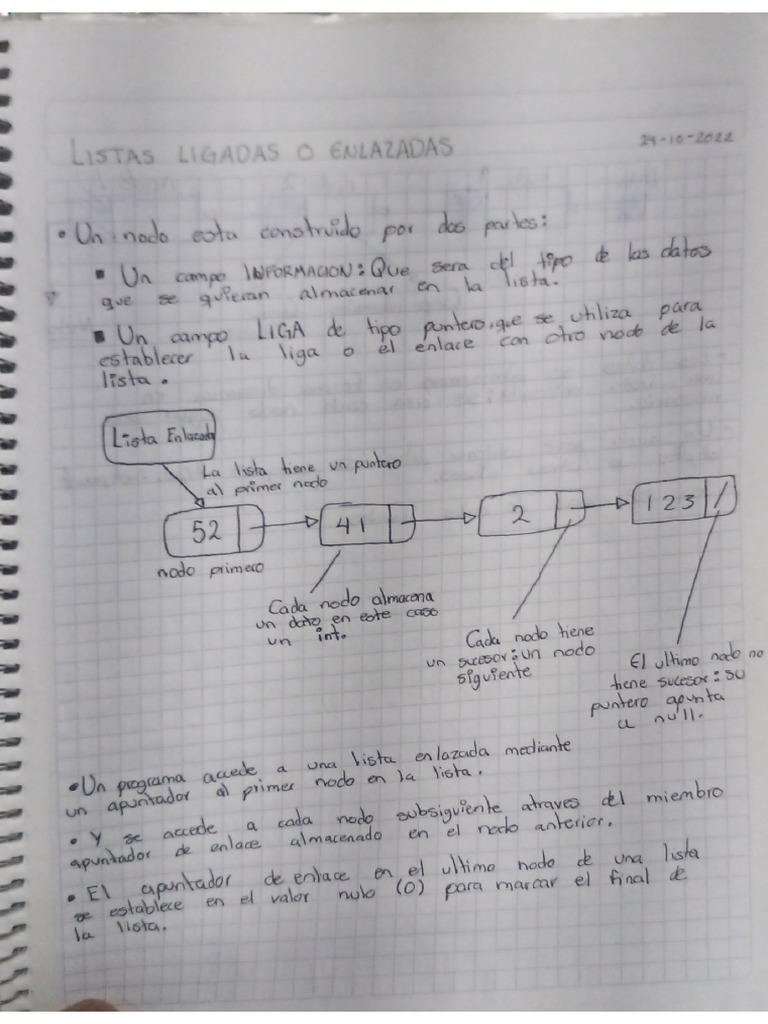 LISTAS LIGADAS O ENLAZADAS
24-10-2022
• Un nodo esta construido por dos partes:
▪ Un campo INFORMACION: Que sera del tipo de las datos
que se quieran almacenar en la lista.
▪ Un campo LIGA de tipo puntero, que se utiliza para
establecer la liga o el enlace con otro nodo de la
lista.
Lista Enlazada
La lista tiene un puntero
al primer nodo
52
41
2
123
nodo primero
Cada nodo almacena
un dato en este caso
un int.
Cada nodo tiene
un sucesor: un nodo
siguiente
El ultimo nodo no
tiene sucesor: su
puntero apunta
a null.
• Un programa accede a una lista enlazada mediante
un apuntador al primer nodo en la lista.
• Y se accede a cada nodo subsiguiente atraves del miembro
apuntador de enlace almacenado en el nodo anterior.
• El apuntador de enlace en el ultimo nodo de una lista
se establece en el valor nulo (0) para marcar el final de
la lista.